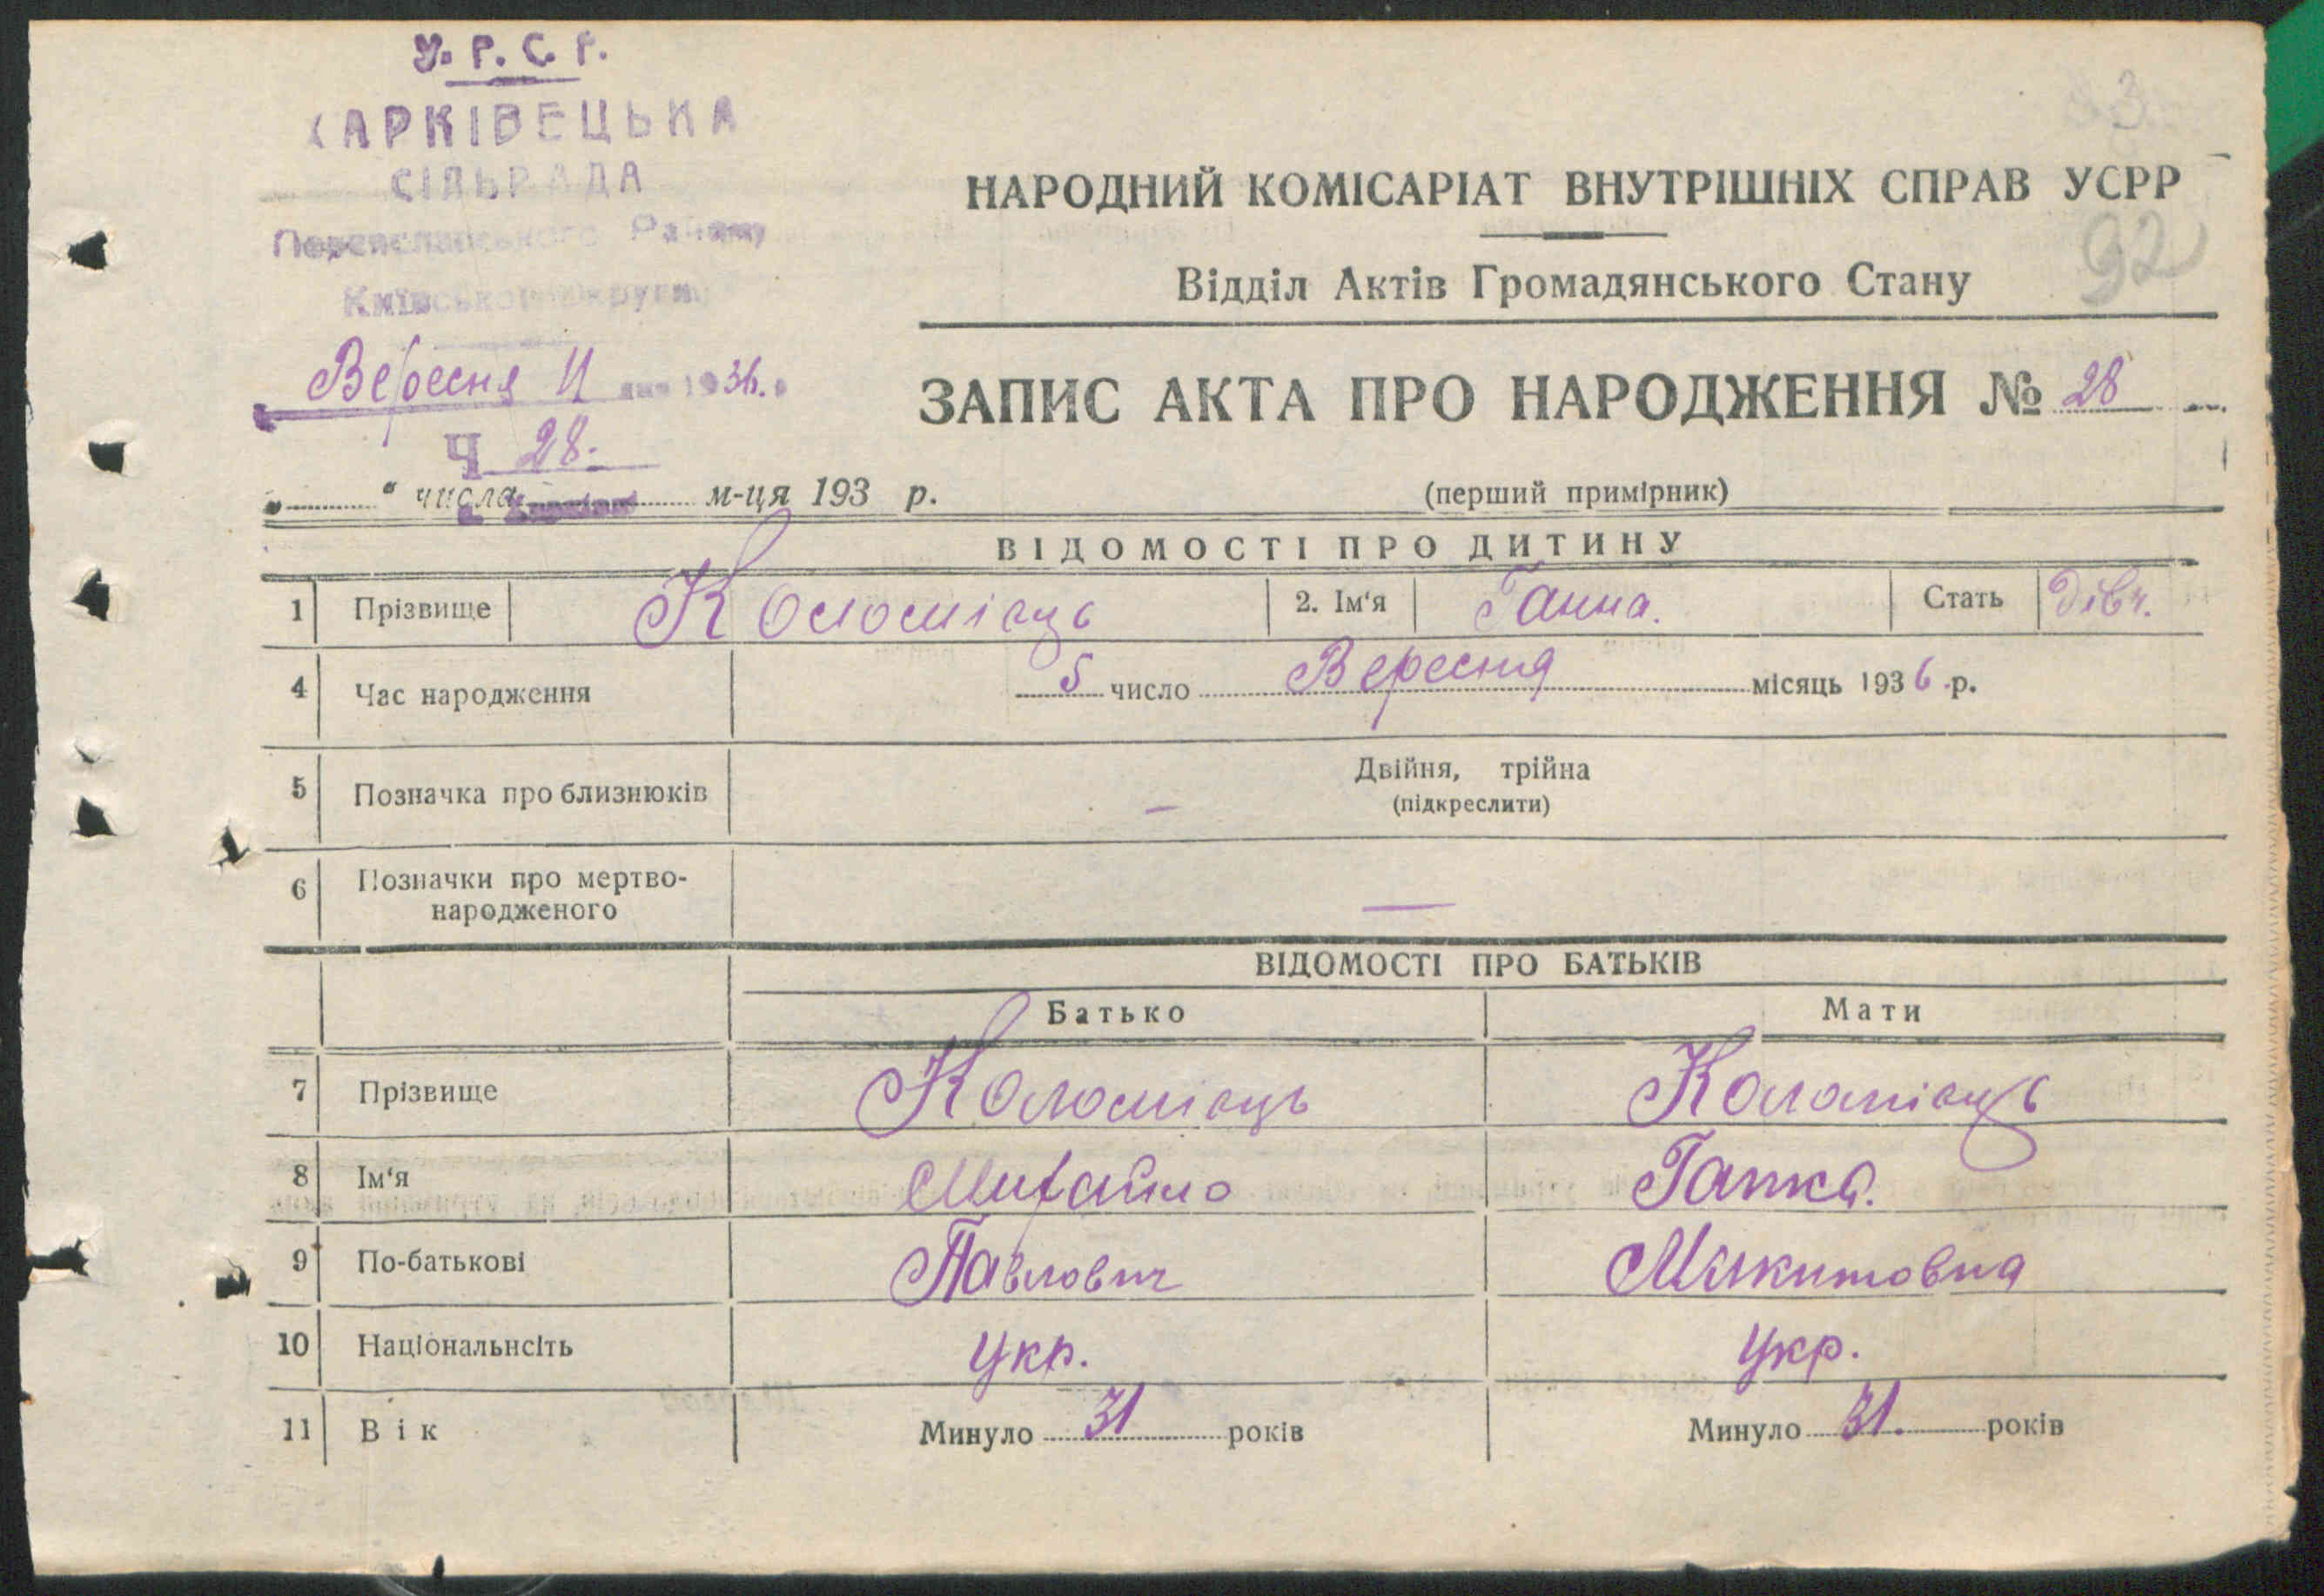 У. Р. С. Р.
ХАРКІВЕЦЬКА
СІЛЬРАДА
Переяславського Району
Київської округи
Вересня 11 дня 1936.
Ч 28.
„ “ числа м-ця 193 р.
3
НАРОДНИЙ КОМІСАРІАТ ВНУТРІШНІХ СПРАВ УСРР
92
Відділ Актів Громадянського Стану
ЗАПИС АКТА ПРО НАРОДЖЕННЯ № 28
(перший примірник)
ВІДОМОСТІ ПРО ДИТИНУ
1 Прізвище Коломієць 2. Ім‘я Ганна. Стать Дівч.
4 Час народження 5 число Вересня місяць 1936 р.
5 Позначка про близнюків — Двійня, трійна
(підкреслити)
6 Позначки про мертво-
народженого —
ВІДОМОСТІ ПРО БАТЬКІВ
Батько Мати
7 Прізвище Коломієць Коломієць
8 Ім‘я Михайло Гапка.
9 По-батькові Павлович Микитовна
10 Національнсіть Укр. Укр.
11 Вік Минуло 31 років Минуло 31. років